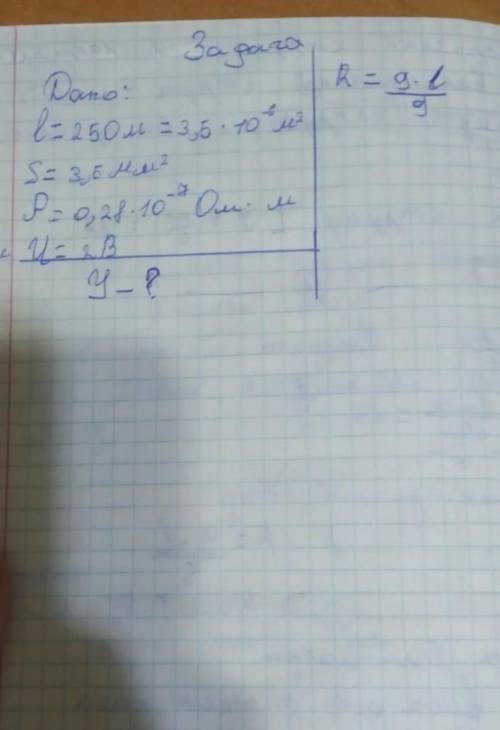 Задача
Дано:
l = 250м = 3,5 · 10⁻⁶ м²
S = 3,5 мм²
ρ = 0,28 · 10⁻⁷ Ом · м
U = 2В
У - ?
R = g · l / g